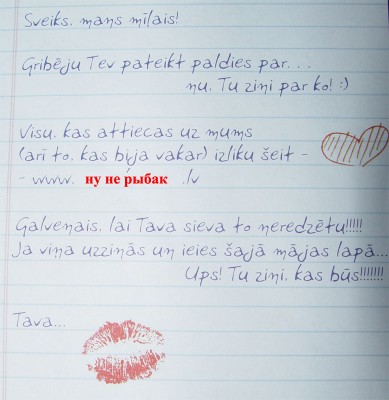 Sveiks, mans mīļais!
Gribēju Tev pateikt paldies par...
nu, Tu ziņi par ko! :)
Visu, kas attiecas uz mums
(arī to, kas bija vakar) izliku šeit -
- www. ну не рыбак .lv
Galvenais, lai Tava sieva to neredzētu!!!!!
Ja viņa uzzinās un ieies šajā mājas lapā...
Ups! Tu ziņi, kas būs!!!!!!!
Tava...